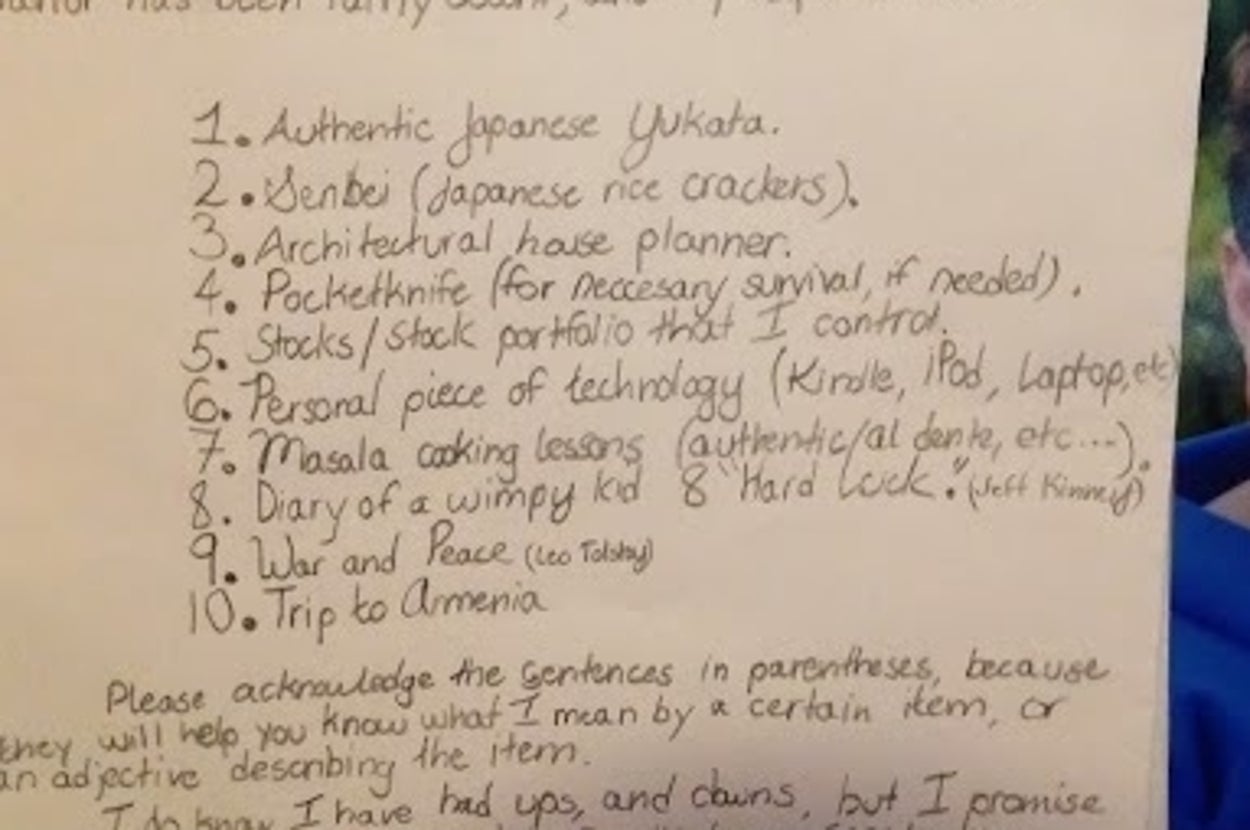 has been fairly
1. Authentic Japanese Yukata.
2. Senbei (Japanese rice crackers).
3. Architectural house planner.
4. Pocketknife (for neccesary survival, if needed).
5. Stocks/Stock portfolio that I control.
6. Personal piece of technology (Kindle, iPod, Laptop, etc)
7. Masala cooking lessons (authentic/al dente, etc...).
8. Diary of a wimpy kid 8 "Hard Luck." (Jeff Kinney)
9. War and Peace (Leo Tolstoy)
10. Trip to Armenia
Please acknowledge the sentences in parentheses, because
they will help you know what I mean by a certain item, or
an adjective describing the item.
I do know I have had ups, and downs, but I promise